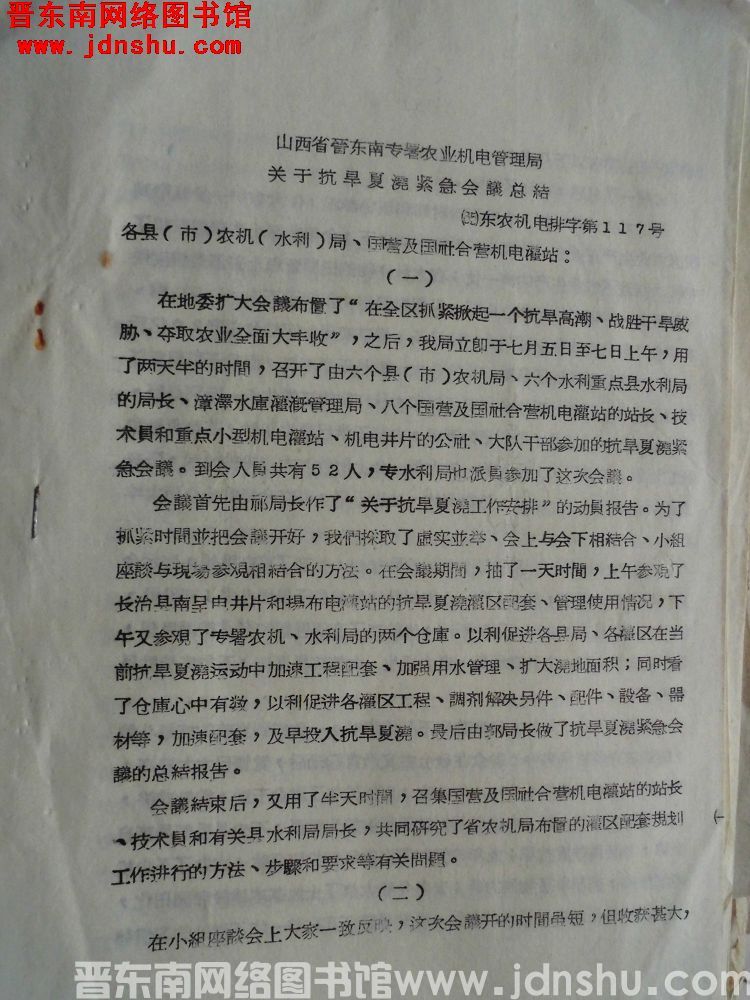 晋东南网络图书馆
www.jdnshu.com
山西省晉东南专署农业机电管理局
关于抗旱夏澆紧急会議总結
东农机电排字第117号
各县(市)农机(水利)局、国营及国社合营机电灌站:
(一)
在地委扩大会議布置了“在全区抓紧掀起一个抗旱高潮、战胜干旱威
胁、夺取农业全面大丰收”,之后,我局立即于七月五日至七日上午,用
了两天半的时間,召开了由六个县(市)农机局、六个水利重点县水利局
的局长、漳澤水庫灌漑管理局、八个国营及国社合营机电灌站的站长、技
术員和重点小型机电灌站、机电井片的公社、大队干部参加的抗旱夏澆紧
急会議。到会人員共有52人,专水利局也派員参加了这次会議。
会議首先由祁局长作了“关于抗旱夏澆工作安排”的动員报告。为了
抓紧时間並把会議开好,我們採取了虛实並举、会上与会下相結合、小組
座談与現場参观相結合的方法。在会議期間,抽了一天时間,上午参覌了
长治县南呈电井片和堨布电灌站的抗旱夏澆灌区配套、管理使用情况,下
午又参覌了专署农机、水利局的两个仓庫。以利促进各县局、各灌区在当
前抗旱夏澆运动中加速工程配套、加强用水管理、扩大澆地面积;同时看
了仓庫心中有数,以利促进各灌区工程、調剂解决另件、配件、設备、器
材等,加速配套,及早投入抗旱夏澆。最后由郭局长做了抗旱夏澆紧急会
議的总結报告。
会議結束后,又用了半天时間,召集国营及国社合营机电灌站的站长
、技术員和有关县水利局局长,共同研究了省农机局布置的灌区配套規划
工作进行的方法、步驟和要求等有关問題。
(二)
在小組座談会上大家一致反映,这次会議开的时間虽短,但收获甚大,
晋东南网络图书馆www.jdnshu.com